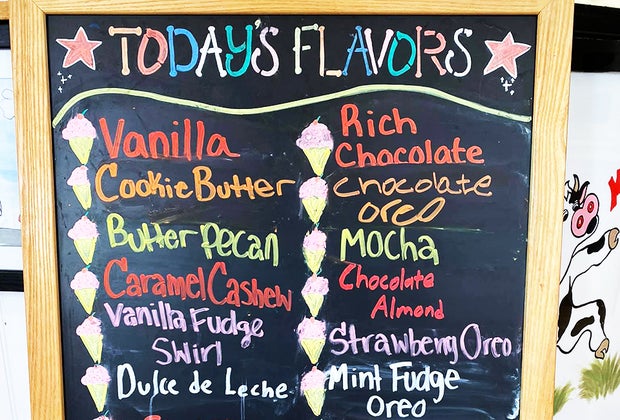 TODAY'S FLAVORS
Vanilla
Cookie Butter
Butter Pecan
Caramel Cashew
Vanilla Fudge
Swirl
Dulce de Leche
Rich
Chocolate
Chocolate
Oreo
Mocha
Chocolate
Almond
Strawberry Oreo
Mint Fudge
Oreo